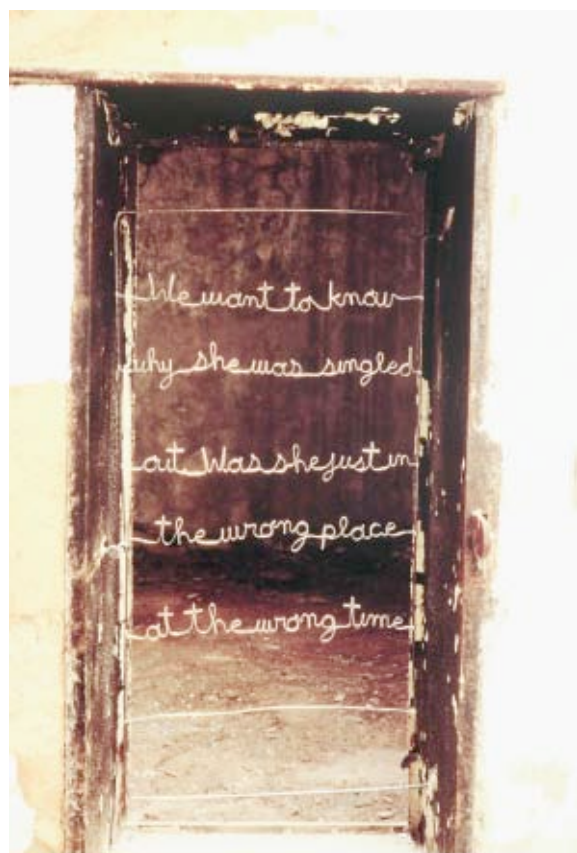 We want to know
why she was singled
out Was she just in
the wrong place
at the wrong time